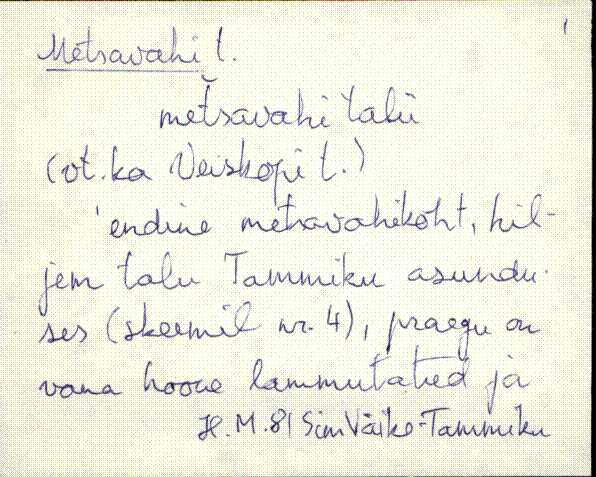 1
Metsavahi t.
metsavahi talu
(vt. ka Veiskopi t.)
'endine metsavahikoht, hil-
jem talu Tammiku asundu-
ses (skeemil nr. 4), praegu on
vana hoone lammutatud ja
H. M. 81 Sim Väike-Tammiku